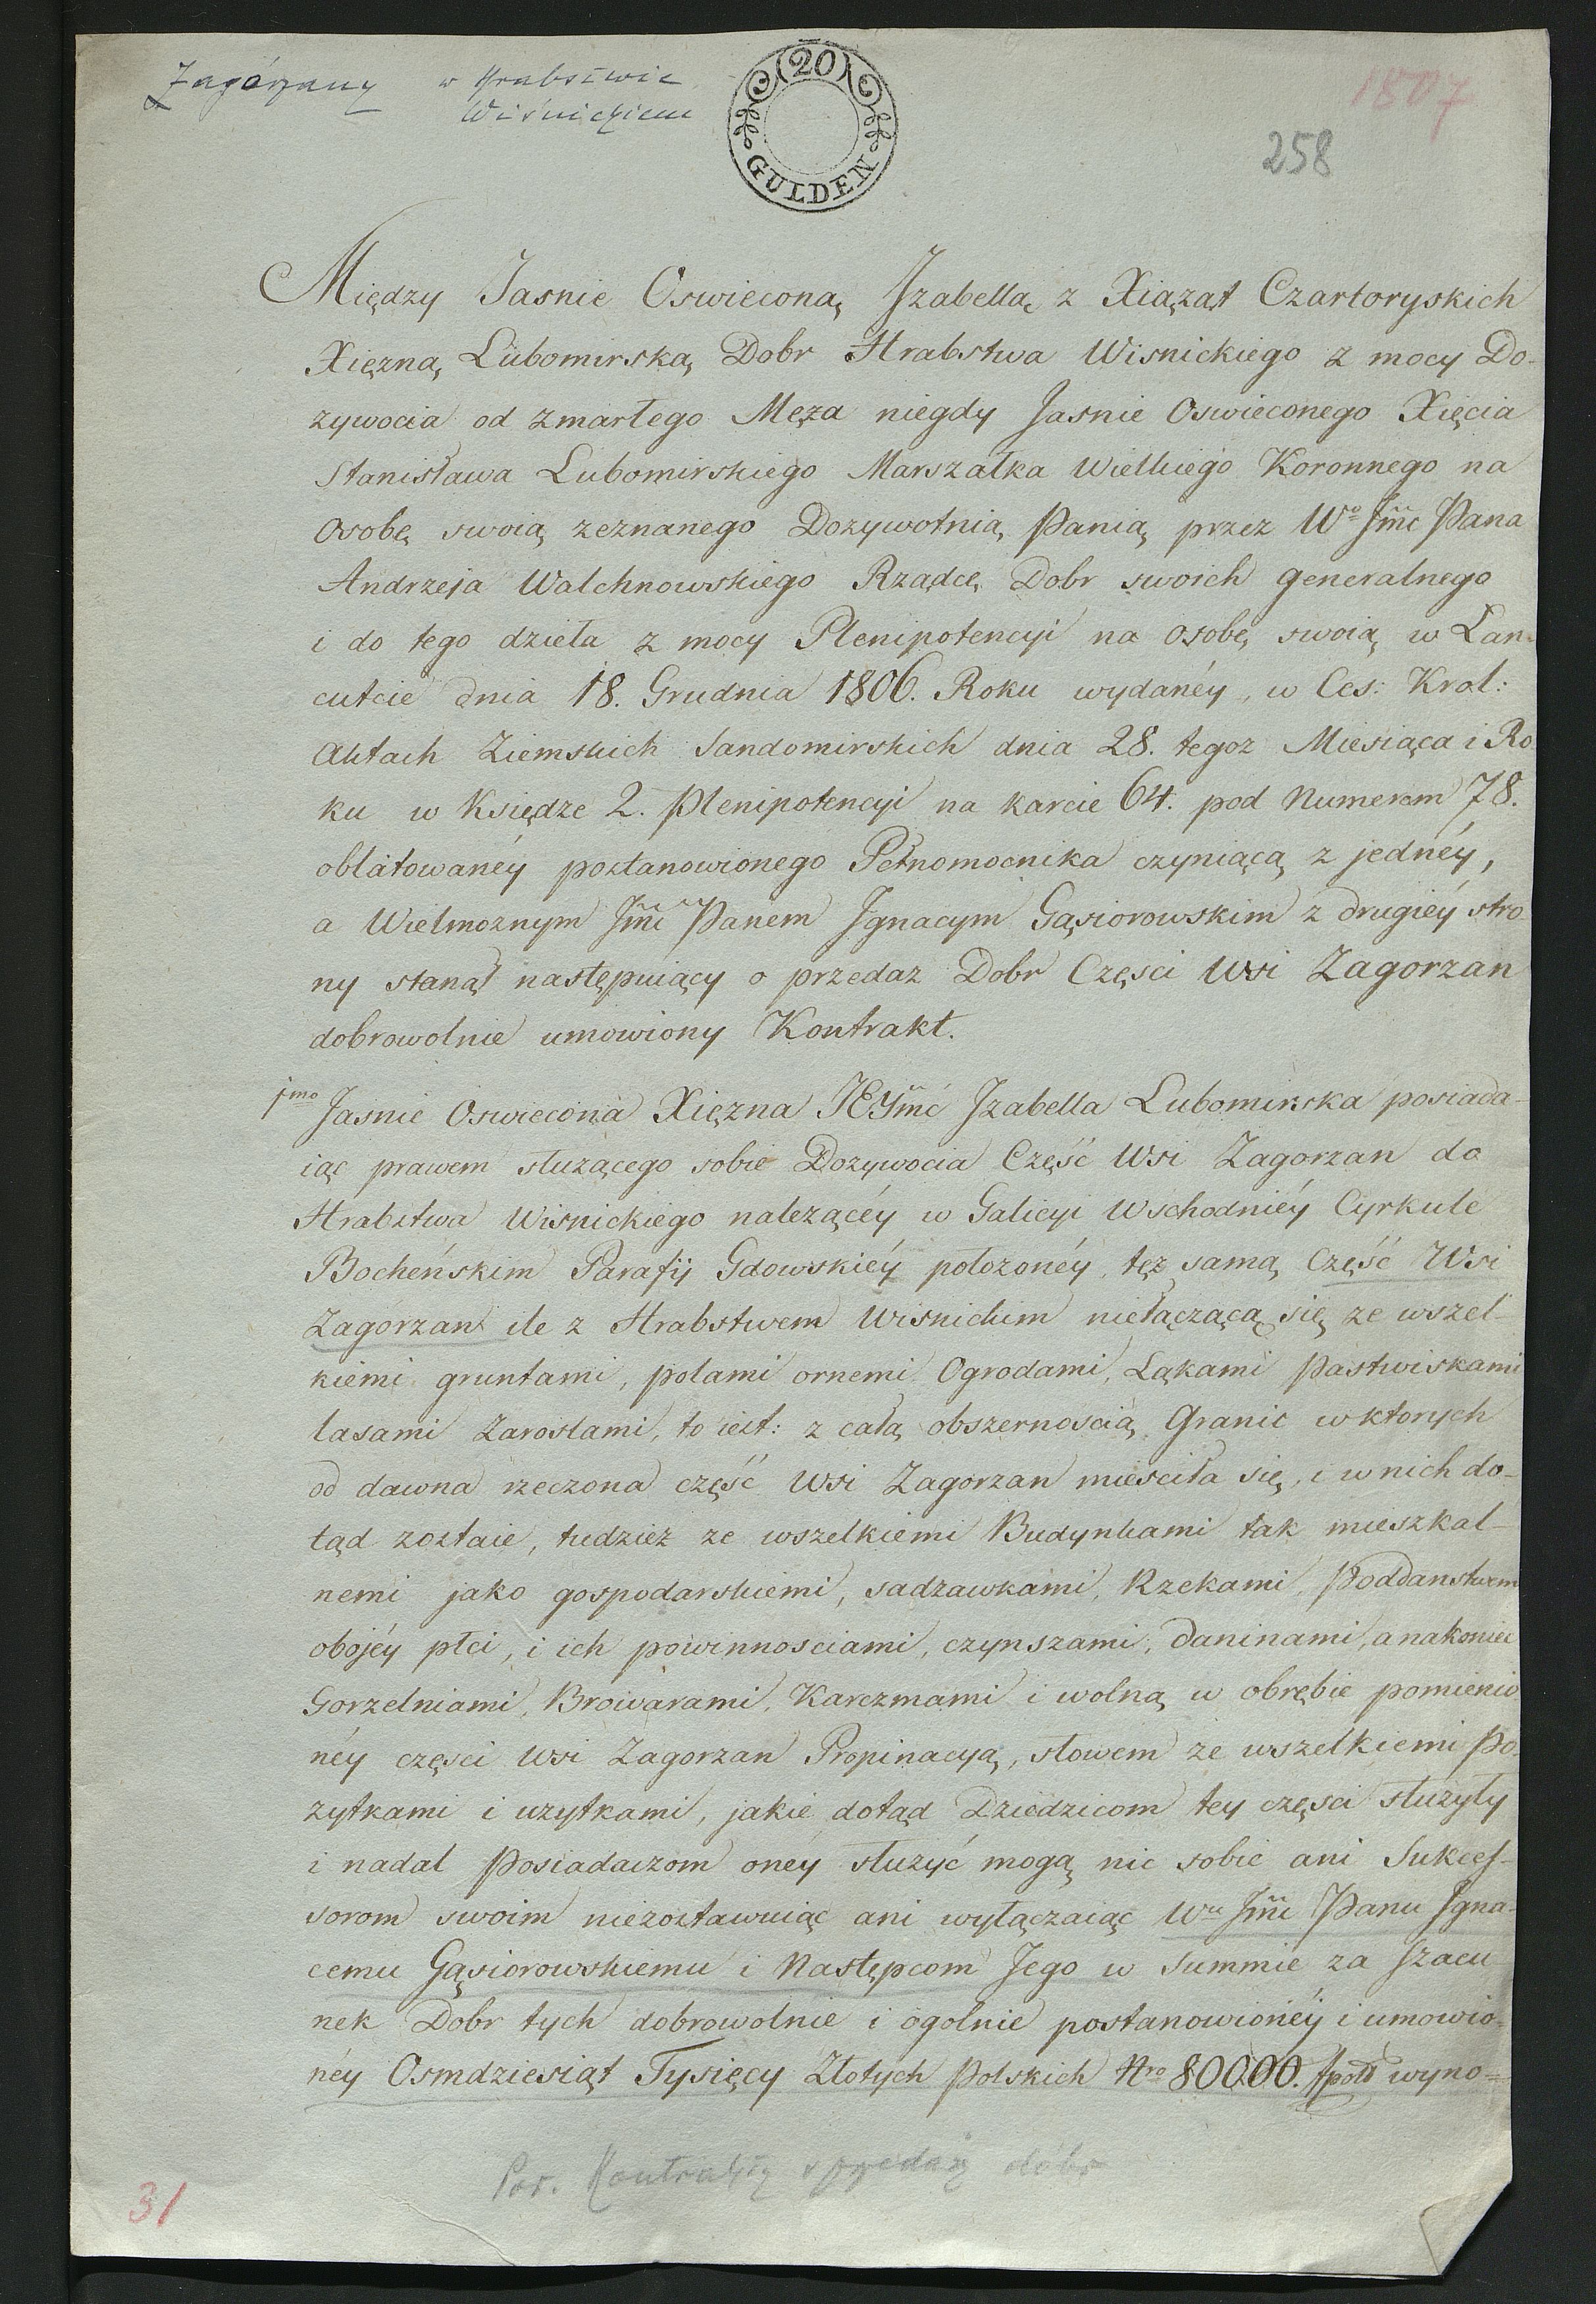 Zagórzany w Hrabstwie
Wiśnickiem
20
GULDEN
1807
258
Między Jasnie Oswieconą Jzabellą z Xiążąt Czartoryskich
Xięzną Lubomirską Dobr Hrabstwa Wisnickiego z mocy Do-
zywocia od zmarłego Męza niegdy Jasnie Oswieconego Xięcia
Stanisława Lubomirskiego Marszałka Wielkiego Koronnego na
Osobę swoią zeznanego Dozywotnią Panią przez Wo Jmc Pana
Andrzeja Walchnowskiego Rządcę Dobr swoich generalnego
i do tego dzieła z mocy Plenipotencyi na osobę swoią w Lan-
cutcie dnia 18. Grudnia 1806. Roku wydanéy, w Ces: Krol:
Aktach Ziemskich Sandomirskich dnia 28. tegoz Miesiąca i Ro
ku w Księdze 2. Plenipotencyi na karcie 64. pod Numerem 78.
oblatowanéy postanowionego Pełnomocnika czyniącą z jednéy,
a Wielmoznym Jmć Panem Jgnacym Gąsiorowskim z drugiéy stro
ny stanął następuiący o przedaz Dobr Częsci Wsi Zagorzan
dobrowolnie umowiony Kontrakt.
jmo Jasnie Oswiecona Xięzna JEYmć Jzabella Lubomirska posiada-
iąc prawem słuzącego sobie Dozywocia Część Wsi Zagorzan do
Hrabstwa Wisnickiego nalezącéy w Galicyi Wschodniéy Cyrkule
Bocheńskim Parafij Gdowskiéy połozonéy tęz samą Część Wsi
Zagórzan ile z Hrabstwem Wisnickim niełączącą się ze wszel-
kiemi gruntami, polami ornemi Ogrodami, Łąkami Pastwiskami
lasami Zaroslami, to iest: z całą obszernoscią Granic w ktorych
od dawna rzeczona część Wsi Zagorzan miesciła się, i w nich do-
tąd zostaie, tudziez ze wszelkiemi Budynkami tak mieszkal-
nemi jako gospodarskiemi, sadzawkami, Rzekami, Poddanstwem
obojéy płci, i ich powinnosciami, czynszami, daninami, a nakoniec
Gorzelniami, Browarami, Karczmami i wolną w obrębie pomienio
néy częsci Wsi Zagorzan Propinacyą, słowem ze wszelkiemi Po-
zytkami i uzytkami, jakie dotąd Dziedzicom tey częsci słuzyły
i nadal Posiadaczom onéy słuzyć mogą nic sobie ani Sukces-
sorom swoim niezostawuiąc ani wyłączaiąc Wu Jmć Panu Jgna-
cemu Gąsiorowskiemu i Następcom Jego w Summie za szacu
nek Dobr tych dobrowolnie i ogolnie postanowionéy i umowio-
néy Osmdziesiąt Tysięcy Złotych Polskich Nro 80000. fpol wyno-
Por. Kontrakty sprzedaży dóbr
31